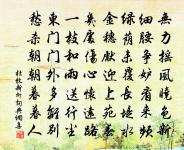 無力搖風曉色新
細腰爭妒看來頻
綠蔭未覆長堤水
金穗先迎上苑春
幾處傷心懷遠路
一枝和雨送行塵
東門門外多離別
愁殺朝朝暮暮人
杜牧新柳詩